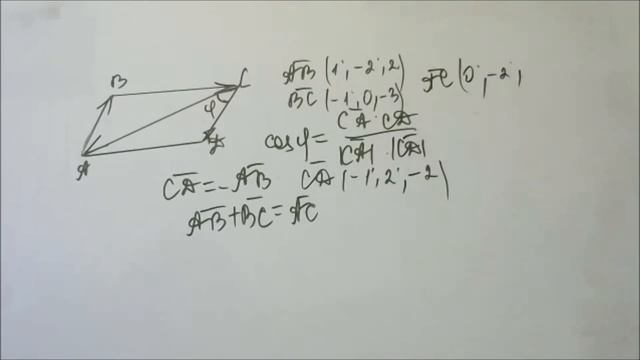 B C
φ
A D
AB (1; -2; 2) AC (0; -2;
BC (-1; 0; -3)
cos φ = CA · CD / |CA| · |CD|
CD = -AB CD (-1; 2; -2)
AB + BC = AC